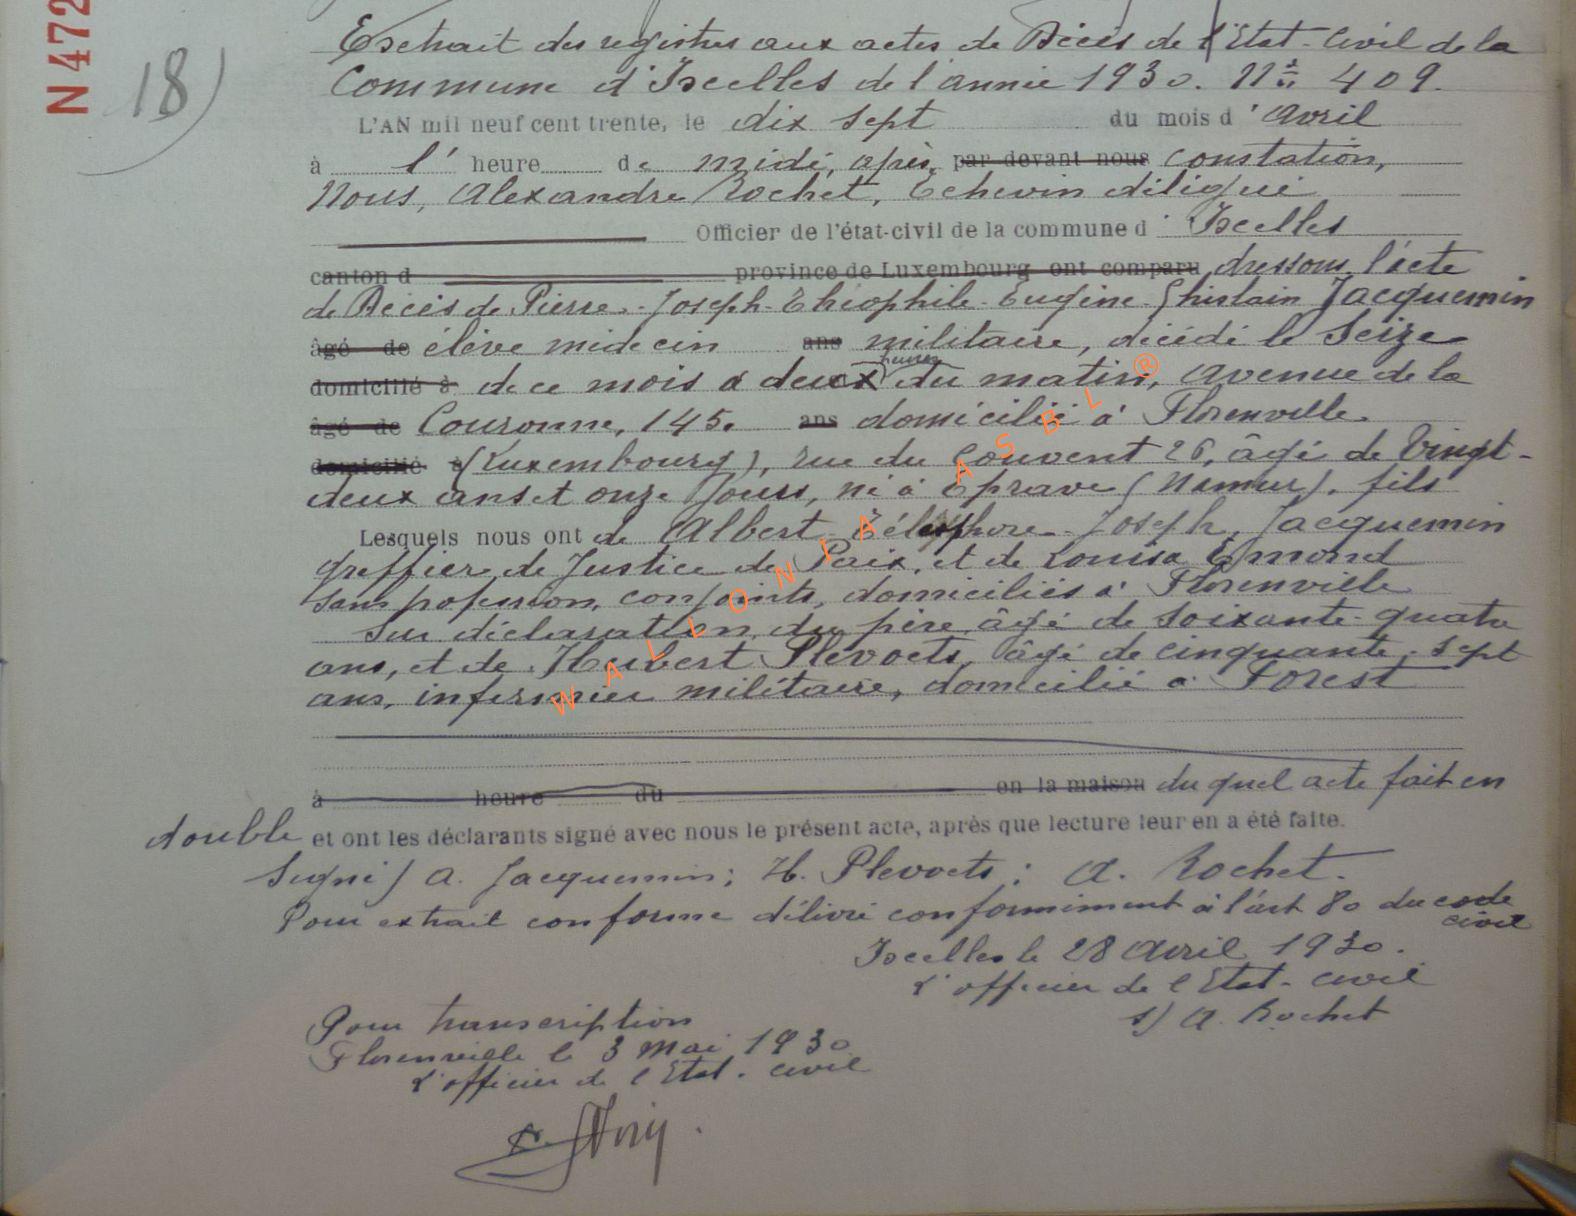 N 472
18)
Extrait des registres aux actes de Décès de l'Etat-Civil de la
Commune d'Ixelles de l'année 1930. N° 409.
L'AN mil neuf cent trente, le dix sept du mois d'avril
à 1' heure de midi, après par devant nous constation,
Nous, Alexandre Rochet, Echevin délégué
Officier de l'état-civil de la commune d' Ixelles
canton d province de Luxembourg ont comparu dressons l'acte
de Décès de Pierre-Joseph-Théophile-Eugène-Ghislain Jacquemin
âgé de élève médecin ans militaire, décédé le Seize
domicilié à de ce mois à deux heures du matin, avenue de la
âgé de Couronne, 145. ans domicilié à Florenville
domicilié à (Luxembourg), rue du Couvent 26, âgé de Vingt-
deux ans et onze Jours, né à Eprave (Namur), fils
Lesquels nous ont de Albert-Télesphore-Joseph, Jacquemin
greffier de Justice de Paix, et de Louisa Emond
sans profession, conjoints, domiciliés à Florenville
Sur déclaration du père âgé de soixante-quatre
ans, et de Hubert Plevoets, âgé de cinquante-sept
ans, infirmier militaire, domicilié à Forest
à heure du en la maison du quel acte fait en
double et ont les déclarants signé avec nous le présent acte, après que lecture leur en a été faite.
Signé) A. Jacquemin; H. Plevoets; A. Rochet.
Pour extrait conforme délivré conformément à l'art 80 du code
civil
Ixelles le 28 Avril 1930.
L'officier de l'Etat-civil
s) A. Rochet
Pour transcription
Florenville le 3 Mai 1930
L'officier de l'Etat-civil
WALLONIA ASBL ®